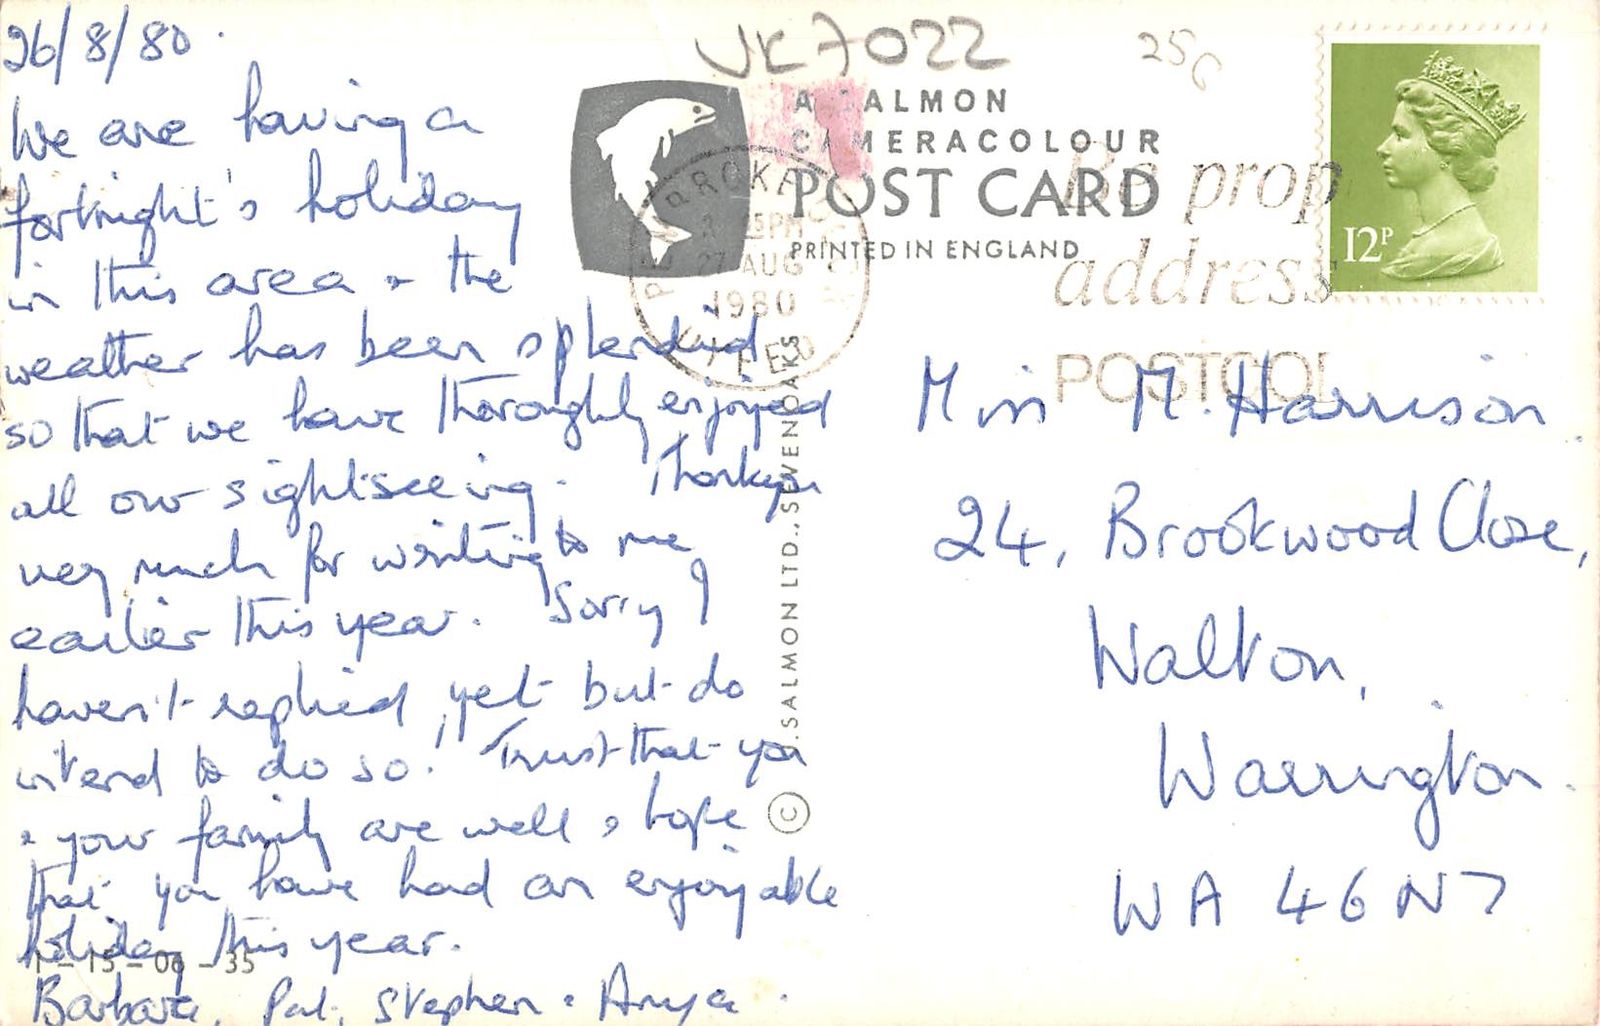 26/8/80.
We are having a
fortnight's holiday
in this area & the
weather has been splendid
so that we have thoroughly enjoyed
all our sightseeing. Thankyou
very much for writing to me
earlier this year. Sorry I
haven't replied yet but do
intend to do so! Trust that you
& your family are well & hope
that you have had an enjoyable
holiday this year.
Barbara, Pat, Stephen & Anya.
1 - 15 - 06 - 35
UK7022
25c
A SALMON
CAMERACOLOUR
POST CARD
PRINTED IN ENGLAND
PM
27 AUG
1980
DYFED
Be prop
address
POSTCO
12P
© J. SALMON LTD., SEVENOAKS
Miss M. Harrison.
24, Brookwood Close,
Walton,
Warrington.
WA 46N7